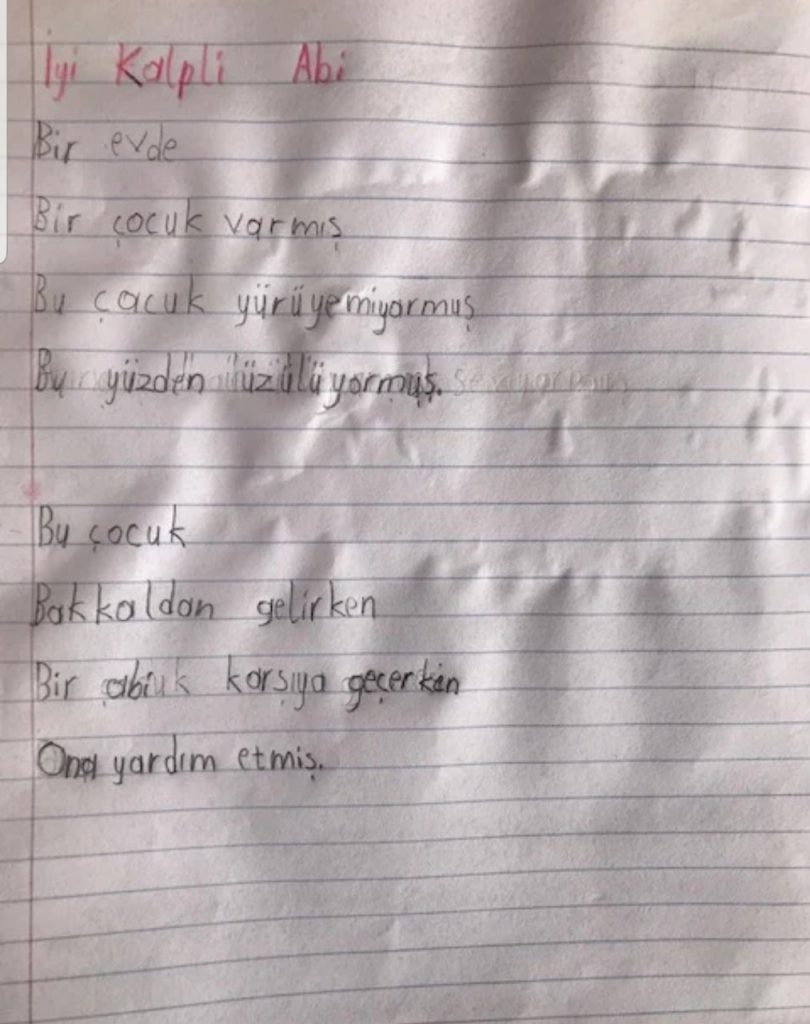 İyi Kalpli Abi
Bir evde
Bir çocuk varmış
Bu çocuk yürüyemiyormuş
Bu yüzden üzülüyormuş.
Bu çocuk
Bakkaldan gelirken
Bir abi karşıya geçerken
Ona yardım etmiş.